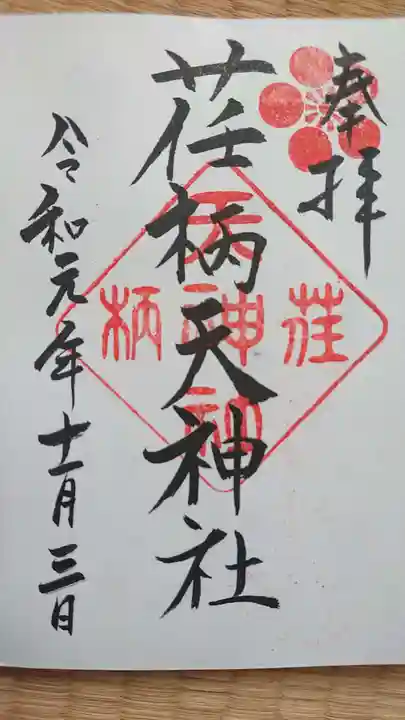 奉拝
荏柄天神社
令和元年十一月三日
荏
天神社
柄